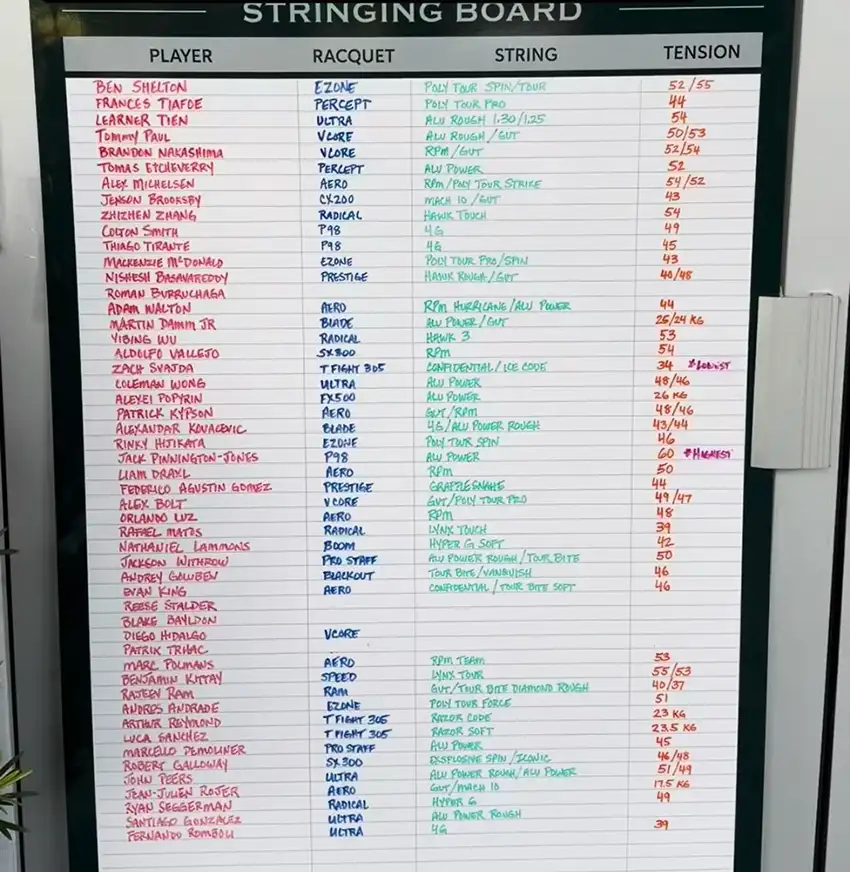 STRINGING BOARD
PLAYER RACQUET STRING TENSION
BEN SHELTON EZONE POLY TOUR SPIN/TOUR 52/55
FRANCES TIAFOE PERCEPT POLY TOUR PRO 44
LEARNER TIEN ULTRA ALU ROUGH 1.30/1.25 54
TOMMY PAUL VCORE ALU ROUGH/GUT 50/53
BRANDON NAKASHIMA VCORE RPM/GUT 52/54
TOMAS ETCHEVERRY PERCEPT ALU POWER 52
ALEX MICHELSEN AERO RPM/POLY TOUR STRIKE 54/52
JENSON BROOKSBY CX200 MACH 10/GUT 43
ZHIZHEN ZHANG RADICAL HAWK TOUCH 54
COLTON SMITH P98 4G 49
THIAGO TIRANTE P98 4G 45
MACKENZIE McDONALD EZONE POLY TOUR PRO/SPIN 43
NISHESH BASAVAREDDY PRESTIGE HAWK ROUGH/GUT 40/48
ROMAN BURRUCHAGA
ADAM WALTON AERO RPM HURRICANE/ALU POWER 44
MARTIN DAMM JR BLADE ALU POWER/GUT 25/24 KG
YIBING WU RADICAL HAWK 3 53
ALDOLFO VALLEJO SX300 RPM 54
ZACH SVAJDA T FIGHT 305 CONFIDENTIAL/ICE CODE 34 *LOWEST
COLEMAN WONG ULTRA ALU POWER 48/46
ALEXEI POPYRIN FX500 ALU POWER 26 KG
PATRICK KYPSON AERO GUT/RPM 48/46
ALEXANDAR KOVACEVIC BLADE 4G/ALU POWER ROUGH 43/44
RINKY HIJIKATA EZONE POLY TOUR SPIN 46
JACK PINNINGTON-JONES P98 ALU POWER 60 *HIGHEST
LIAM DRAXL AERO RPM 50
FEDERICO AGUSTIN GOMEZ PRESTIGE GRAPPLESNAKE 44
ALEX BOLT VCORE GUT/POLY TOUR PRO 49/47
ORLANDO LUZ AERO RPM 48
RAFAEL MATOS RADICAL LYNX TOUCH 39
NATHANIEL LAMMONS BOOM HYPER G SOFT 42
JACKSON WITHROW PRO STAFF ALU POWER ROUGH/TOUR BITE 50
ANDREY GOLUBEV BLACKOUT TOUR BITE/VANQUISH 46
EVAN KING AERO CONFIDENTIAL/TOUR BITE SOFT 46
REESE STALDER
BLAKE BAYLDON
DIEGO HIDALGO VCORE
PATRIK TRHAC
MARC POLMANS AERO RPM TEAM 53
BENJAMIN KITTAY SPEED LYNX TOUR 55/53
RAJEEV RAM RAM GUT/TOUR BITE DIAMOND ROUGH 40/37
ANDRES ANDRADE EZONE POLY TOUR FORCE 51
ARTHUR REYMOND T FIGHT 305 RAZOR CODE 23 KG
LUCA SANCHEZ T FIGHT 305 RAZOR SOFT 23.5 KG
MARCELLO DEMOLINER PRO STAFF ALU POWER 45
ROBERT GALLOWAY SX300 EXSPLOSIVE SPIN/ICONIC 46/48
JOHN PEERS ULTRA ALU POWER ROUGH/ALU POWER 51/49
JEAN-JULIEN ROJER AERO GUT/MACH 10 17.5 KG
RYAN SEGGERMAN RADICAL HYPER G 49
SANTIAGO GONZALEZ ULTRA ALU POWER ROUGH
FERNANDO ROMBOLI ULTRA 4G 39